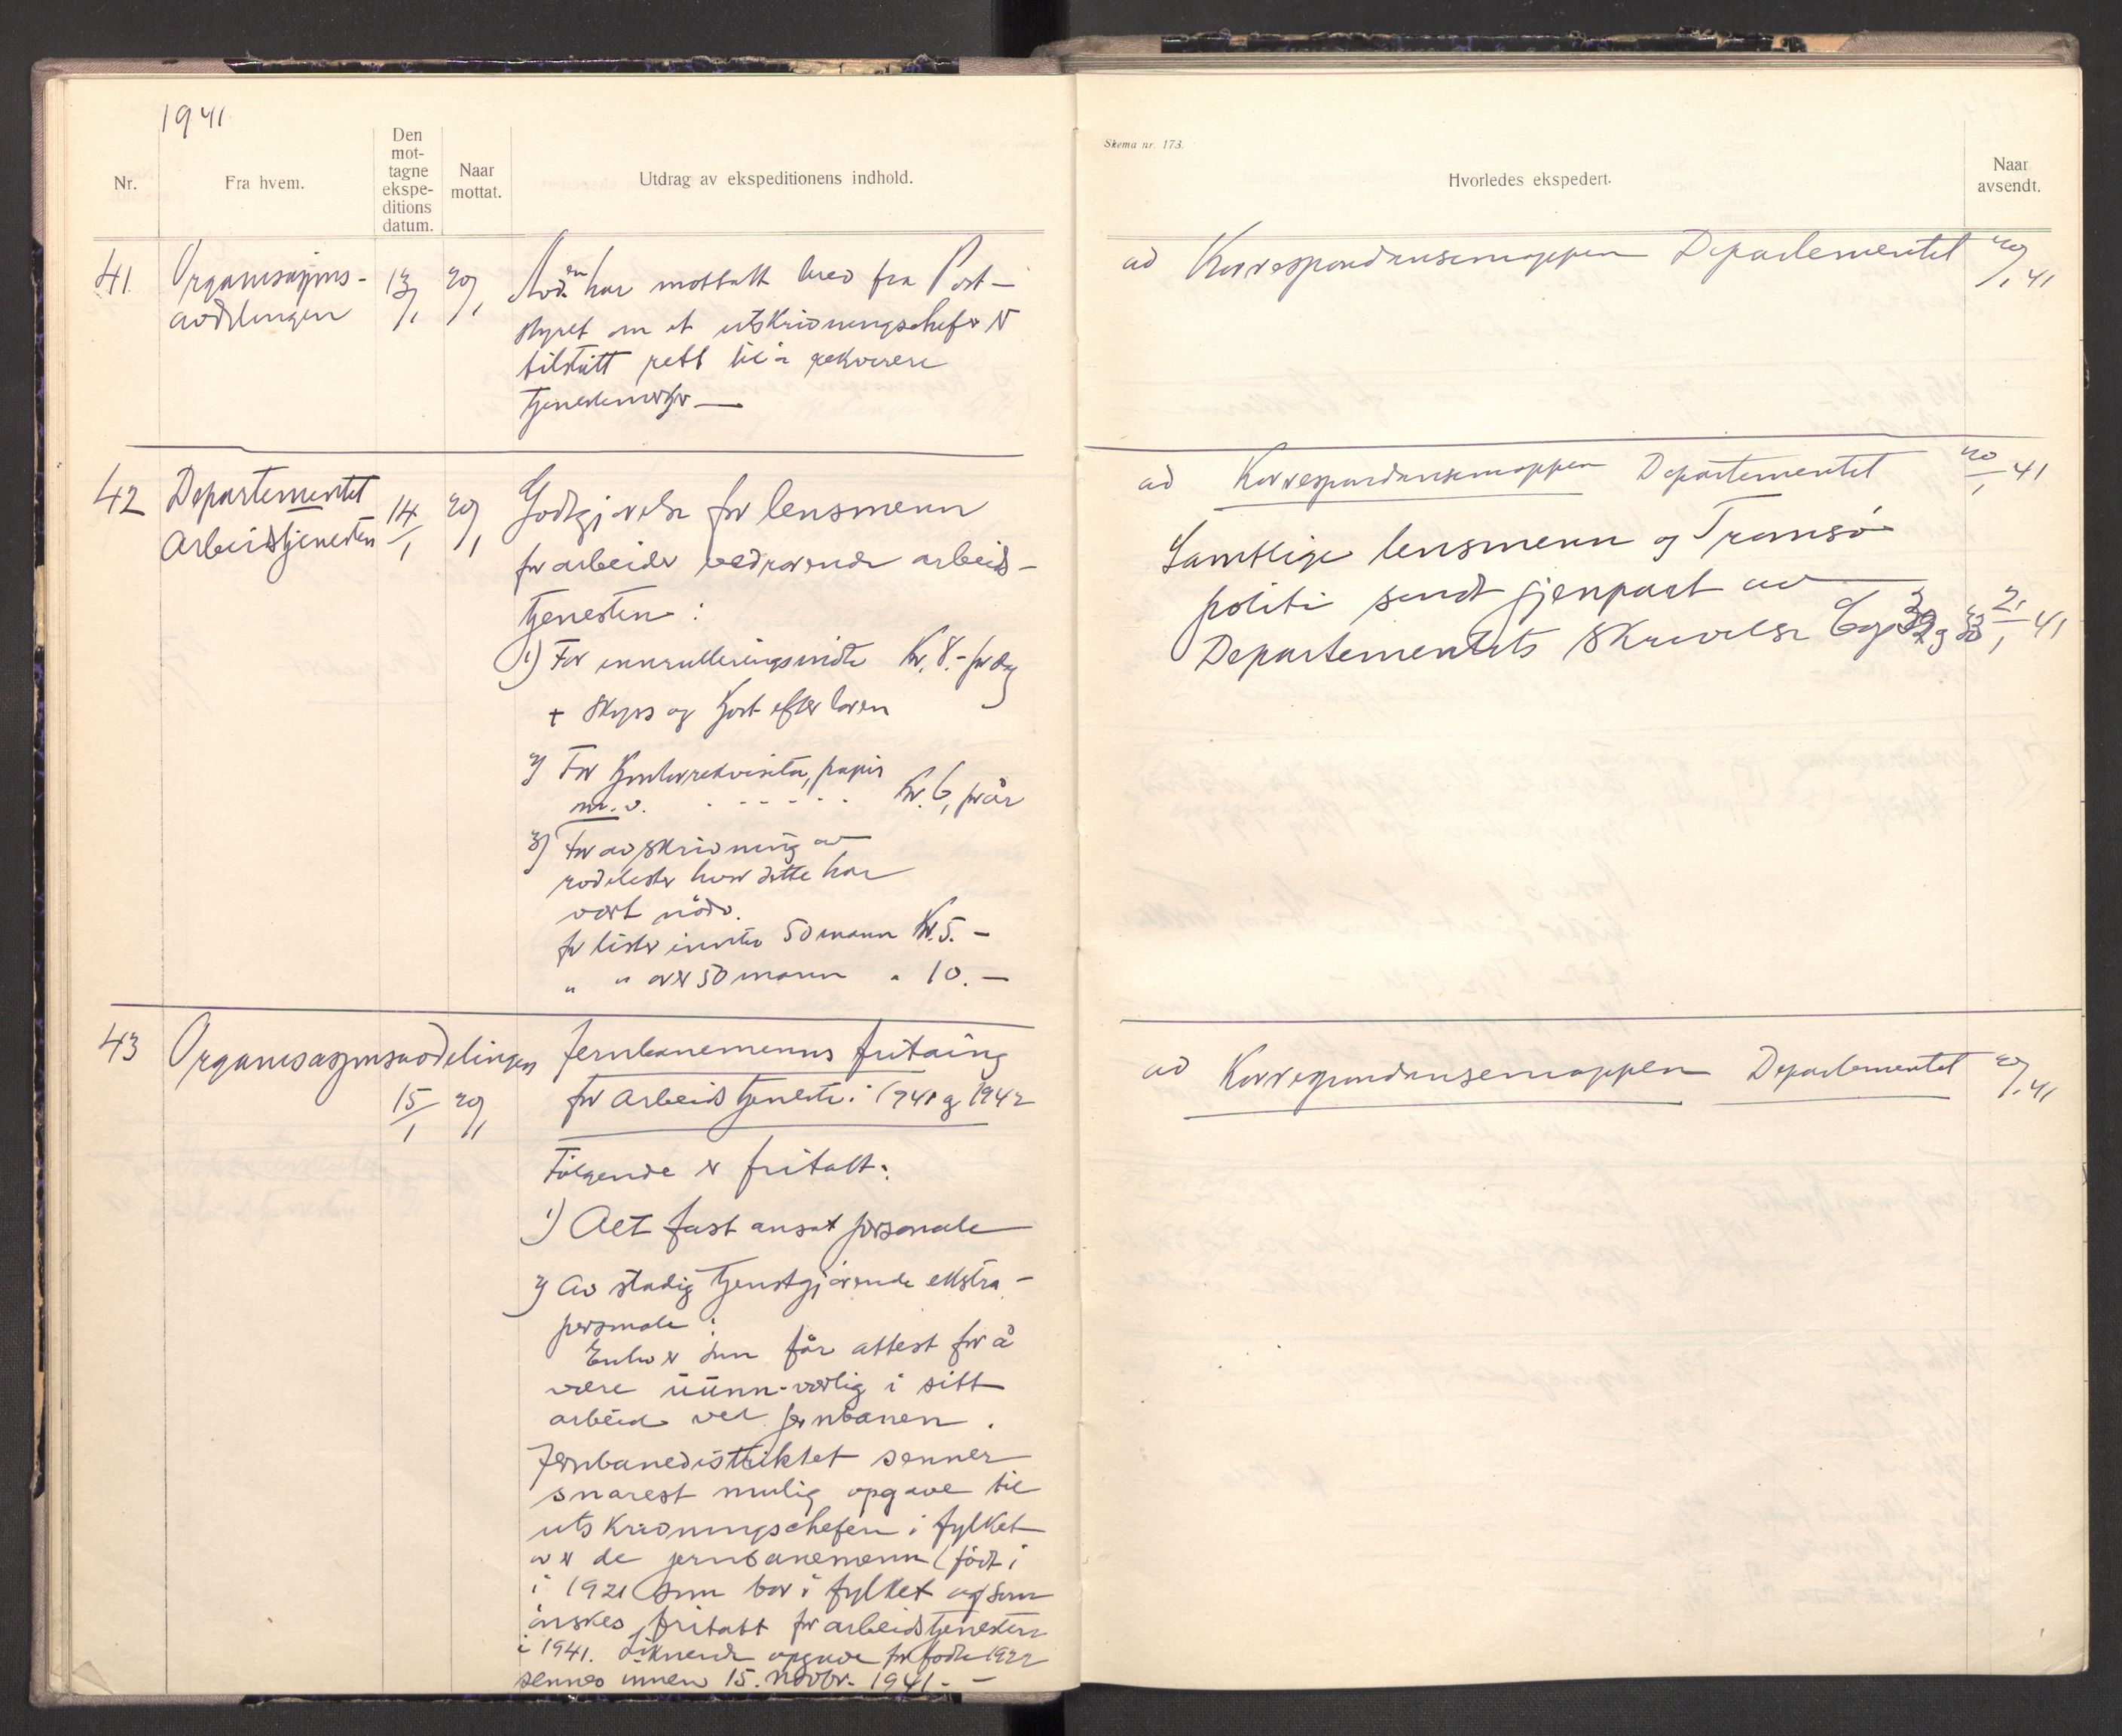 1941
Nr.
Fra hvem.
Den
mot-
tagne
ekspe-
ditions
datum.
Naar
mottat.
Utdrag av ekspeditionens indhold.
41
Organisasjons-
avdelingen
13/1
20/1
Avd.en har mottatt brev fra Post-
styret om at utskrivningschef er
tilstått rett til å rekvirere
tjenestemerker —
42
Departementet
Arbeidstjenesten
14/1
20/1
Godtgjørelse for lensmenn
for arbeider vedrørende arbeids-
tjenesten :
1) For innrulleringsmöte Kr. 8.- pr dag
+ Skyss og Kost efter loven
2) For Kontorrekvisita, papir
m. v. . - - - - . Kr. 6, pr år
3) For avskrivning av
rodelister hvor dette har
vært nödv.
for lister inntil 50 mann Kr. 5. -
" " over 50 mann " 10. -
43
Organisasjonsavdelingen
15/1
20/1
Jernbanemenns fritaing
for Arbeidstjeneste i 1941 og 1942
Fölgende er fritatt:
1) Alt fast ansat personale
2) Av stadig tjenstgjørende ekstra-
personale :
Enhver som får attest for å
være uunn-værlig i sitt
arbeid ved jernbanen .
Jernbanedistriktet sender
snarest mulig opgave til
utskrivningschefen i fylket
over de jernbanemenn (födt i
i 1921 som bor i fylket og som
önskes fritatt for arbeidstjenesten
i 1941. Liknende opgave for födte 1922
sendes innen 15. novbr. 1941. -
Skema nr. 173.
Hvorledes ekspedert.
Naar
avsendt.
ad Korrespondansemappen Departementet 20/1 41
ad Korrespondansemappen Departementet 20/1 41
Samtlige lensmenn og Tromsö
politi sendt gjenpart av
Departementets skrivelse 21/1 41
ad Korrespondansemappen Departementet 20/1 41